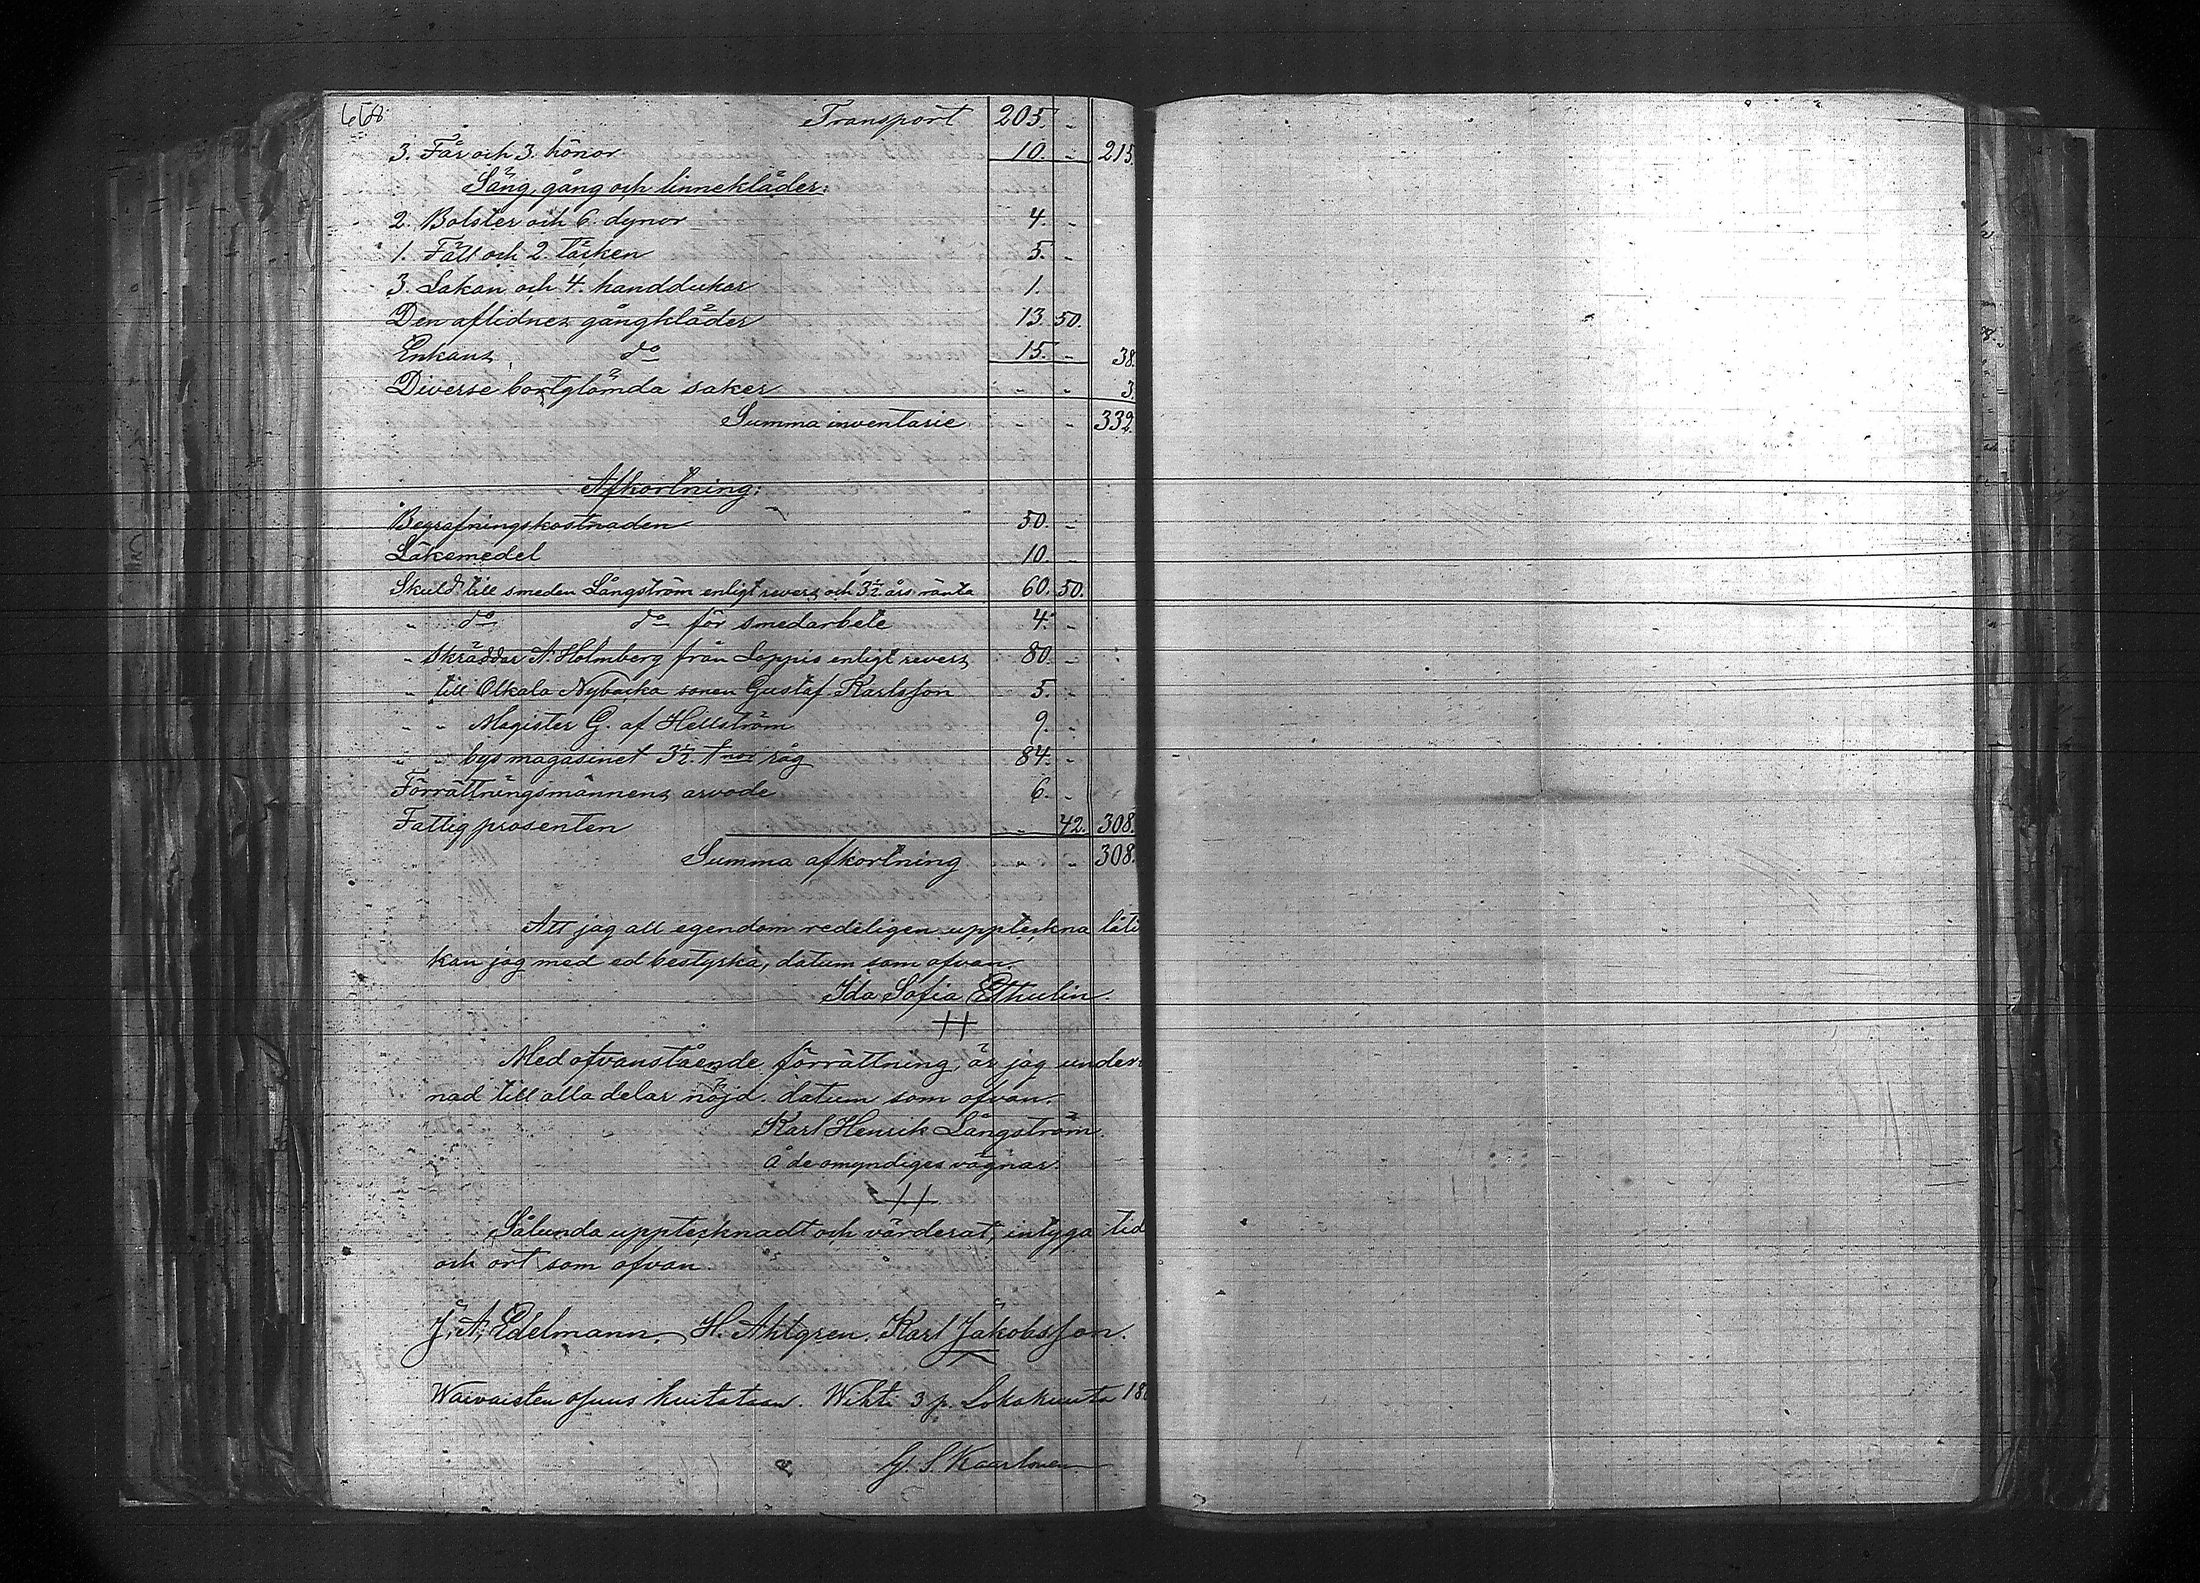 658
Transport 205. -
3. Får och 3. hönor 10. - 215.
Säng, gång och linnekläder:
2. Bolster och 6. dynor 4. -
1. Fäll och 2. täcken 5. -
3. Lakan och 4. handdukar 1. -
Den aflidnes gångkläder 13. 50.
Enkans do 15. - 38.
Diverse bortglömda saker - - 3.
Summa inventarie - - 332.
Afkortning:
Begrafningskostnaden 50. -
Läkemedel 10. -
Skuld till smeden Långström enligt revers och 3½ års ränta 60. 50.
" do do för smedarbete 4. -
" skräddar A. Holmberg från Loppis enligt revers 80. -
" till Olkala Nybacka sonen Gustaf Karlsson 5. -
" " Magister G. af Hellström 9. -
" " bys magasinet 3½ tnor råg 84. -
Förrättningsmännens arvode 6. -
Fattig prosenten - 42. 308.
Summa afkortning - - 308.
Att jag all egendom redeligen uppteckna låti
kan jag med ed bestyrka, datum som ofvan.
Ida Sofia Ethulin.
++
Med ofvanstående förrättning, är jag under
nad till alla delar nöjd. datum som ofvan.
Karl Henrik Långström.
å de omyndiges vägnar.
++
Sålunda upptecknadt och värderat, intyga tid
och ort som ofvan
J. A. Edelmann. H. Ahlgren. Karl Jakobsson.
Waivaisten osuus kuitataan. Wihti 3 p. Lokakuuta 18
G. S. Kaarlonen